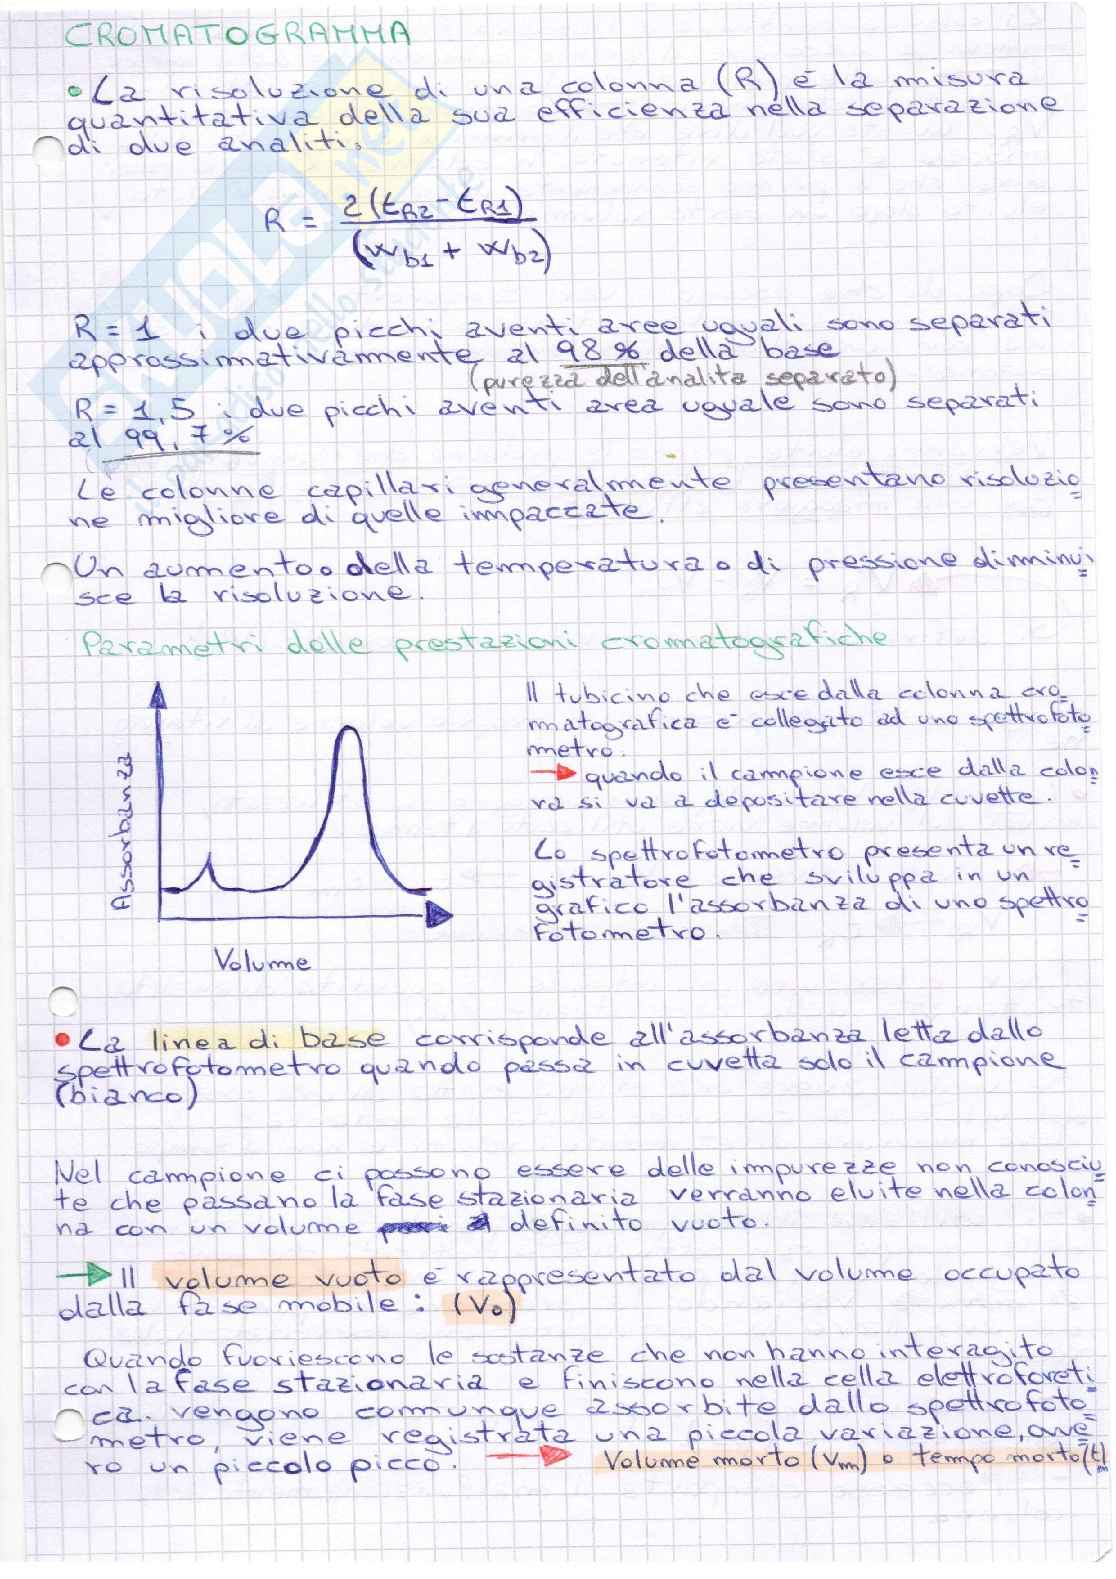 CROMATOGRAMMA
• La risoluzione di una colonna (R) è la misura
quantitativa della sua efficienza nella separazione
di due analiti.
R = 2(tR2 - tR1)
(wb1 + wb2)
R = 1 i due picchi aventi aree uguali sono separati
approssimativamente al 98% della base
(purezza dell'analita separato)
R = 1,5 i due picchi aventi area uguale sono separati
al 99,7%
Le colonne capillari generalmente presentano risoluzio
ne migliore di quelle impaccate.
Un aumento o della temperatura o di pressione diminui
sce la risoluzione.
Parametri delle prestazioni cromatografiche
Il tubicino che esce dalla colonna cro
matografica è collegato ad uno spettrofoto
metro.
→ quando il campione esce dalla colon
na si va a depositare nella cuvette.
Lo spettrofotometro presenta un re
gistratore che sviluppa in un
grafico l'assorbanza di uno spettro
fotometro.
Assorbanza
Volume
• La linea di base corrisponde all'assorbanza letta dallo
spettrofotometro quando passa in cuvetta solo il campione
(bianco)
Nel campione ci possono essere delle impurezze non conosciu
te che passano la fase stazionaria verranno eluite nella colon
na con un volume definito vuoto.
→ Il volume vuoto è rappresentato dal volume occupato
dalla fase mobile: (Vo)
Quando fuoriescono le sostanze che non hanno interagito
con la fase stazionaria e finiscono nella cella elettroforeti
ca. vengono comunque assorbite dallo spettrofoto
metro, viene registrata una piccola variazione, ovve
ro un piccolo picco. → Volume morto (Vm) o tempo morto (tm)